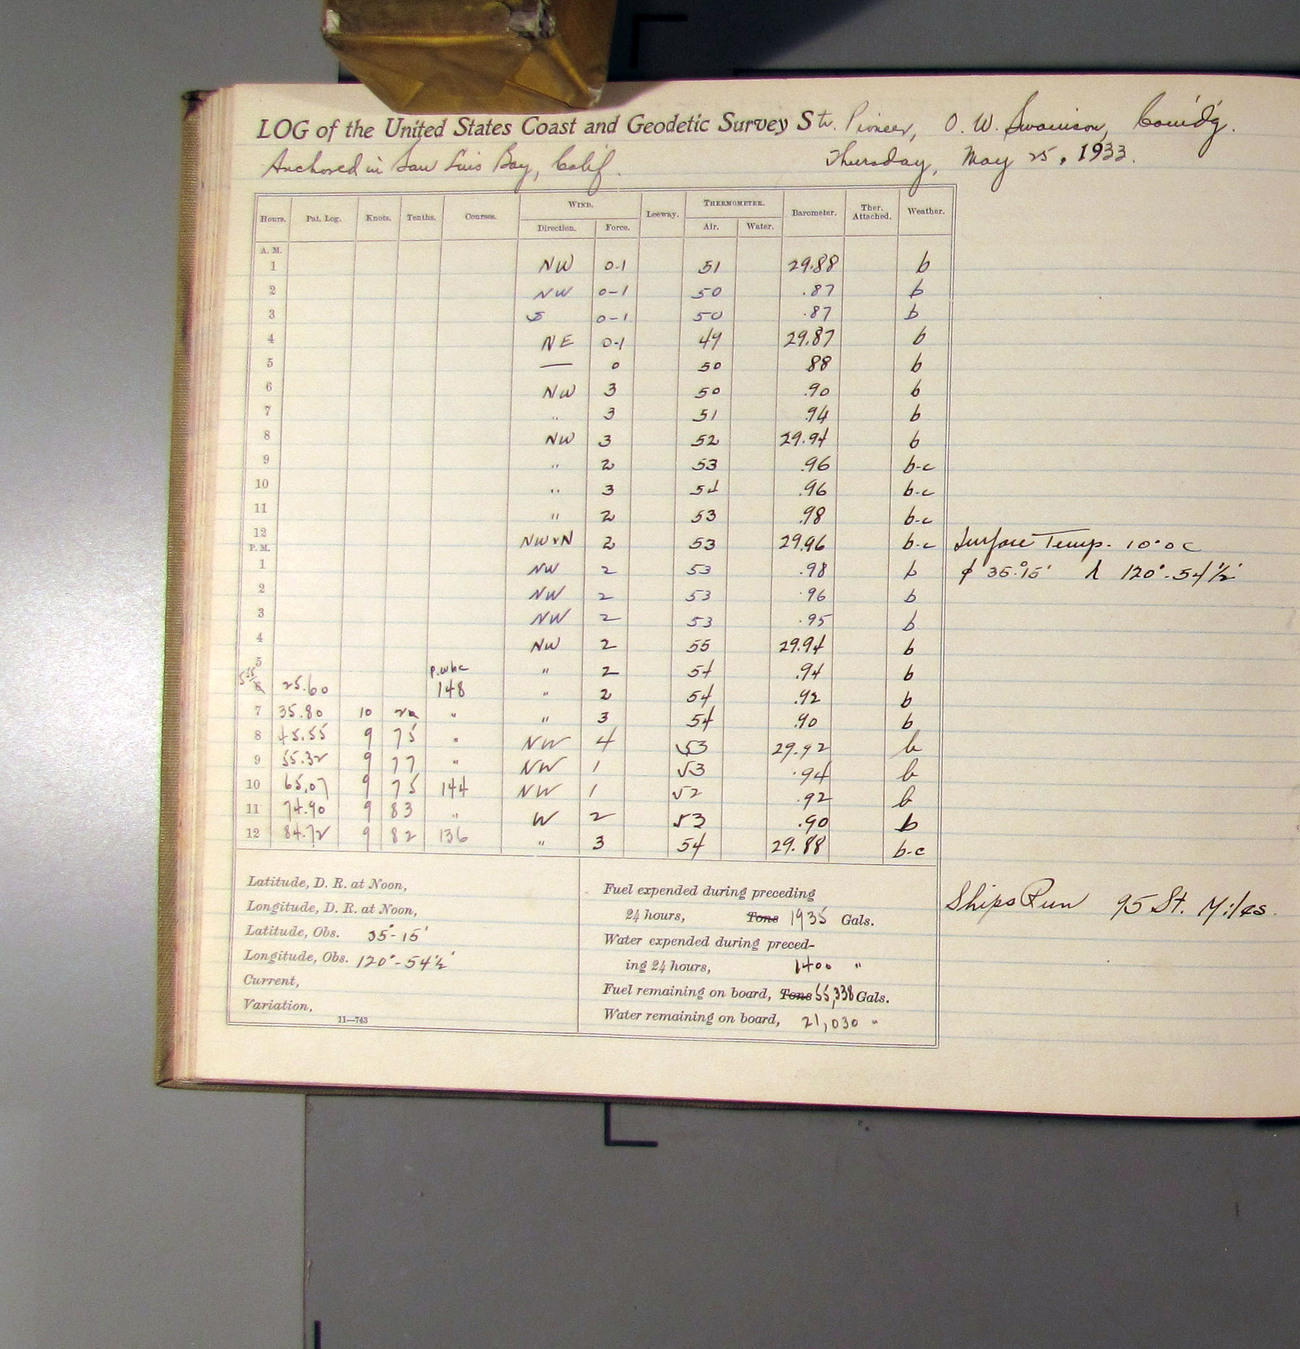 LOG of the United States Coast and Geodetic Survey Str. Pioneer, O. W. Swainson, Com'd'g.
Anchored in San Luis Bay, Calif. Thursday, May 25, 1933.
Hours. Pat. Log. Knots. Tenths. Courses. WIND. Leeway. THERMOMETER. Barometer. Ther. Attached. Weather.
Direction. Force. Air. Water.
A. M.
1 NW 0-1 51 29.88 b
2 NW 0-1 50 .87 b
3 S 0-1 50 .87 b
4 NE 0-1 49 29.87 b
5 — 0 50 88 b
6 NW 3 50 .90 b
7 " 3 51 .94 b
8 NW 3 52 29.94 b
9 " 2 53 .96 b-c
10 " 3 54 .96 b-c
11 " 2 53 .98 b-c
12 NWxN 2 53 29.96 b-c Surface Temp. 10°.0 C
P. M.
1 NW 2 53 .98 b φ 35°-15' λ 120°-54½'
2 NW 2 53 .96 b
3 NW 2 53 .95 b
4 NW 2 55 29.94 b
5 p.whc " 2 54 .94 b
6 25.60 148 " 2 54 .92 b
7 35.80 10 20 " " 3 54 .90 b
8 45.55 9 75 " NW 4 53 29.92 b
9 55.32 9 77 " NW 1 53 .94 b
10 65.07 9 75 144 NW 1 52 .92 b
11 74.90 9 83 " W 2 53 .90 b
12 84.72 9 82 136 " 3 54 29.88 b-c
Latitude, D. R. at Noon,
Longitude, D. R. at Noon,
Latitude, Obs. 35°-15'
Longitude, Obs. 120°-54½'
Current,
Variation,
11—743
Fuel expended during preceding
24 hours, Tons 1935 Gals.
Water expended during preced-
ing 24 hours, 1400 "
Fuel remaining on board, Tons 55,338 Gals.
Water remaining on board, 21,030 "
Ships Run 95 St. Miles.